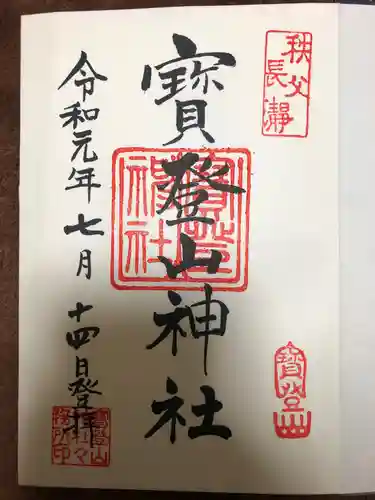 秩父
長瀞
寶登山神社
寶登山
神社
寶登山
令和元年七月十四日登拝
寶登山
神社々
務所印